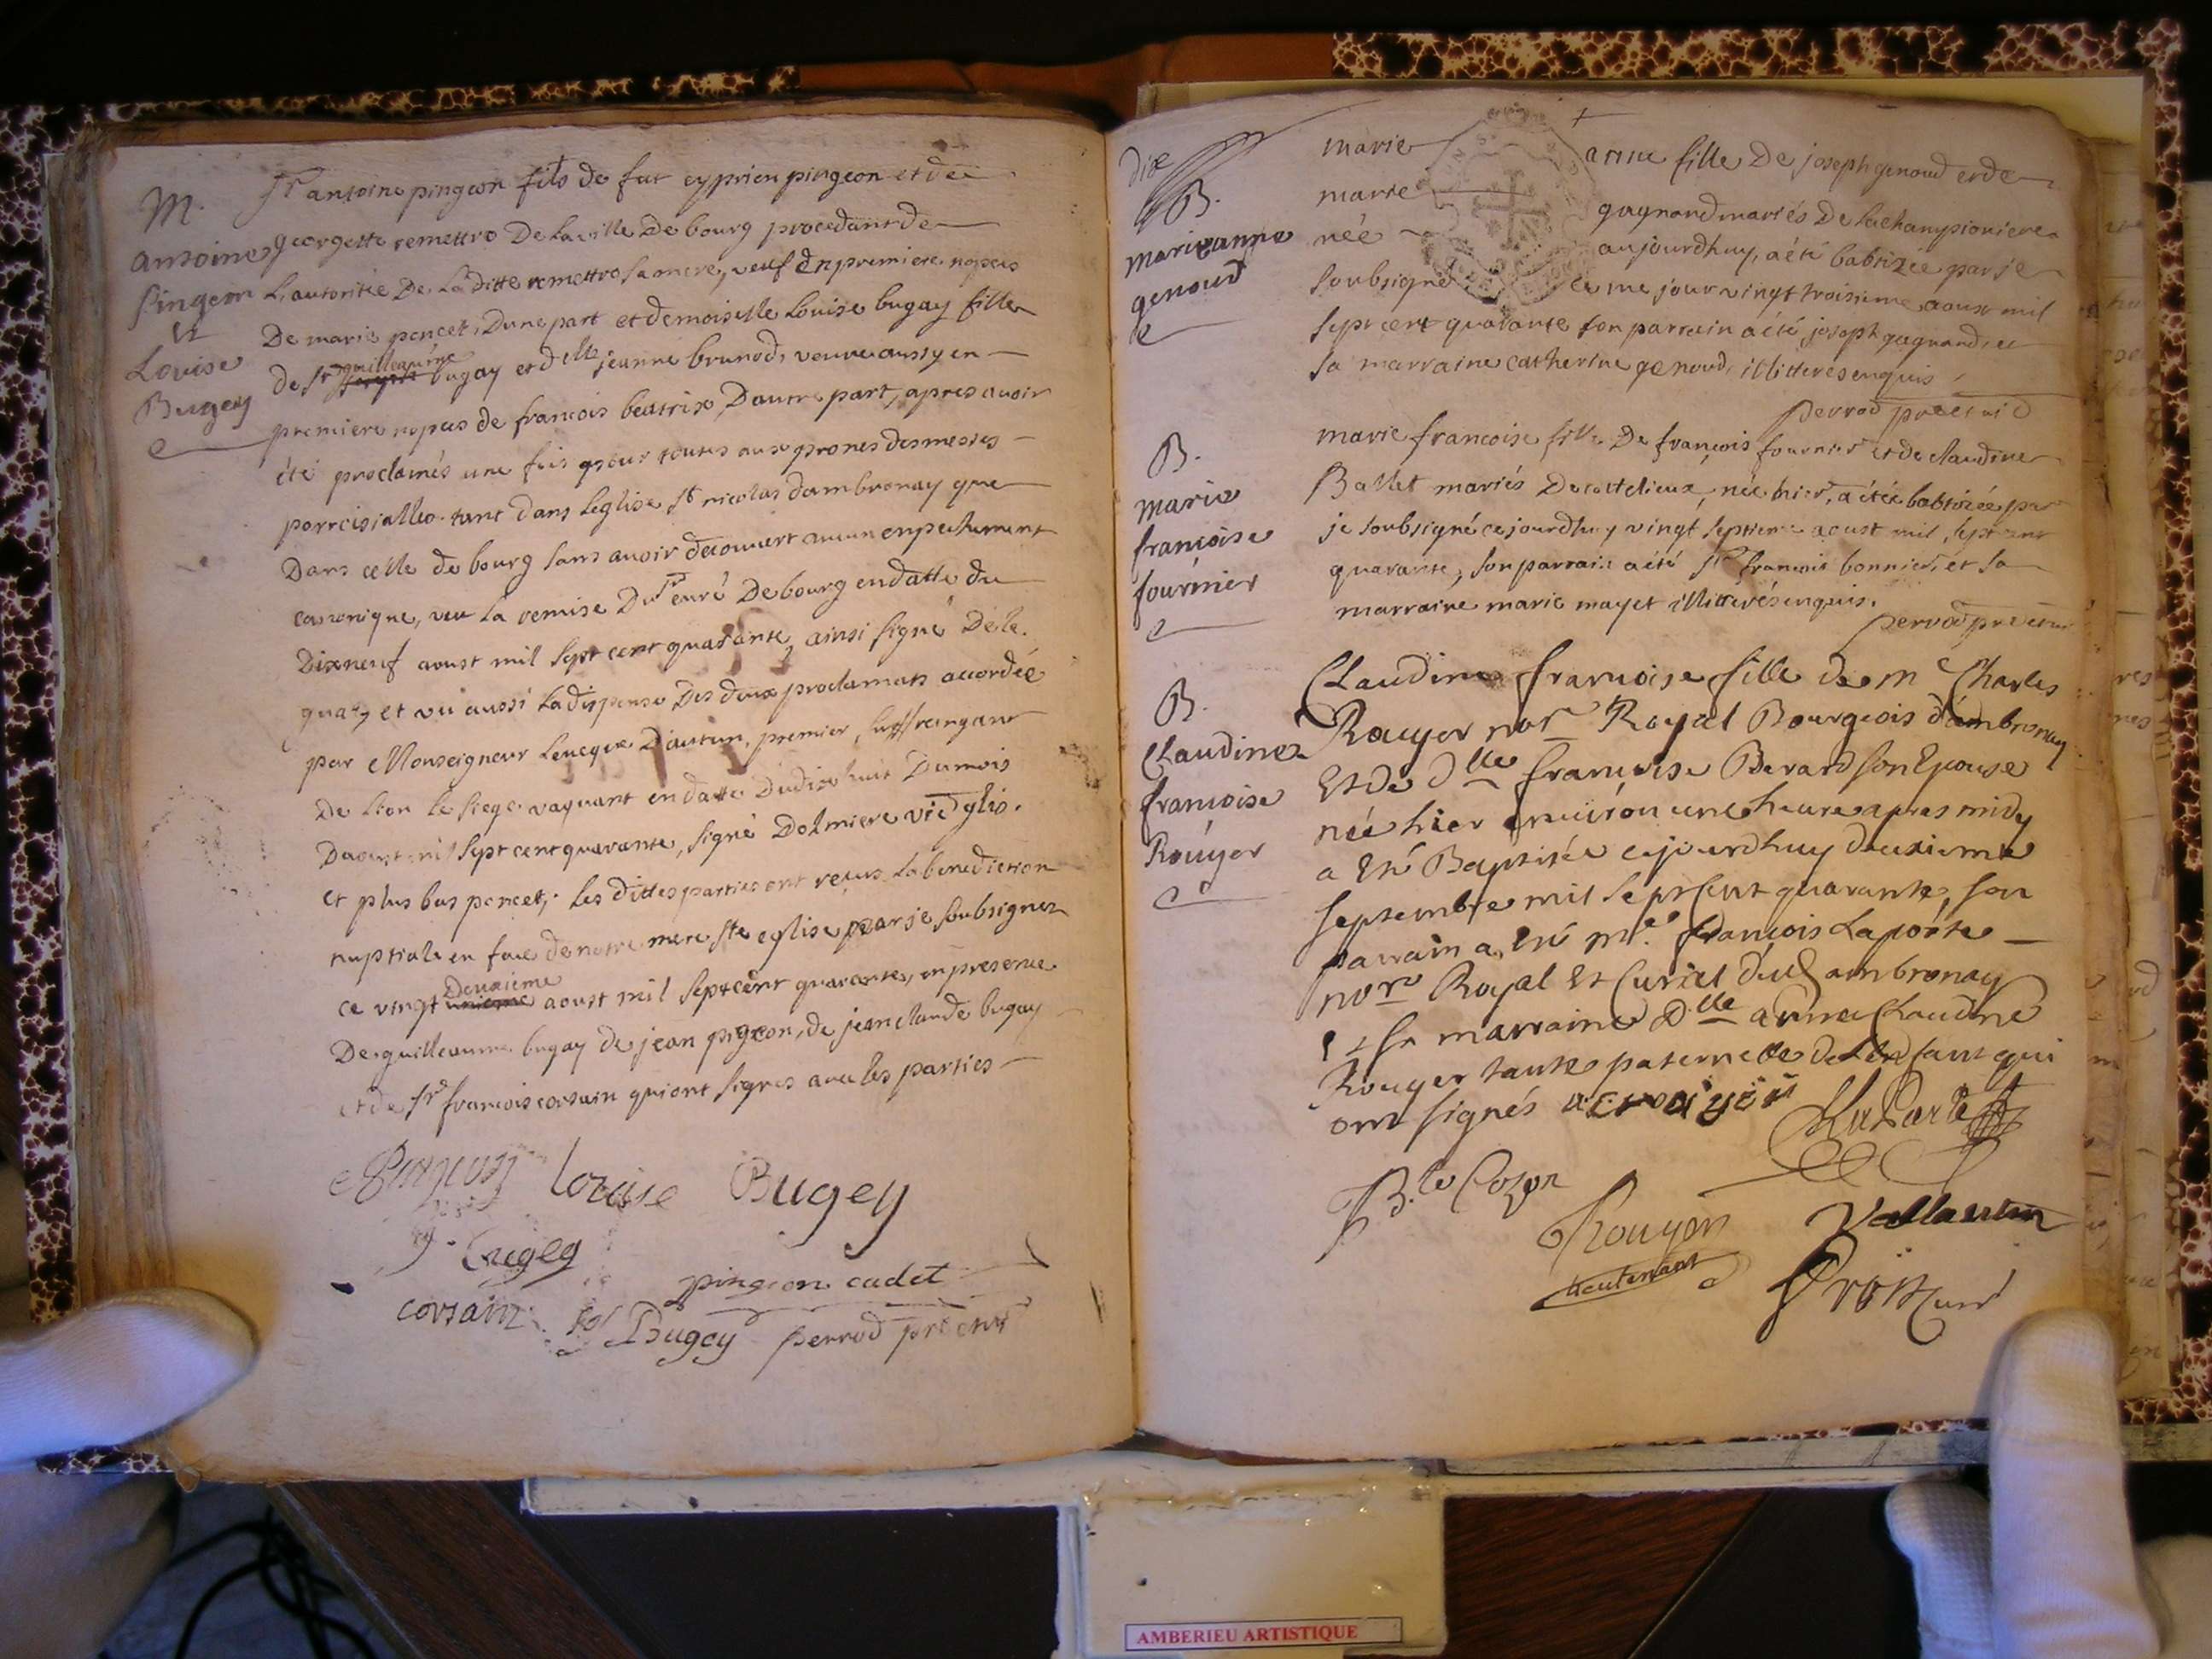 M.
antoine
pingeon
et
Louise
Bugey
Sr antoine pingeon fils de fut cyprien pingeon et de
georgette remettro De la ville De bourg procedant de
L'autoritée De La ditte remettro sa mere, veuf En premiere nopces
De marie poncet, Dune part et demoiselle Louise bugay fille
de Sr guilleaume bugay et dlle jeanne brunod, veuve aussy en
premiere nopces de francois beatrix, D'autre part, apres avoir
été proclamés une fois pour toutes aux prones des messes
parroisialles tant dans Leglise St nicolas dambronay que
Dans celle de bourg sans avoir decouvert aucun enpechement
canonique, veu la remise Du Sr curé De bourg en datte du
Dixneuf aoust mil sept cent quarante, ainsi signé
et vu aussi La dispense Des deux proclamats accordée
par Monseigneur Leveque D'autun, premier suffreangant
De Lion le siege vaquant en datte Du dix huit Du mois
Daoust mil sept cent quarante, signé Dolmiere vic glis.
et plus bas poncet, Les dittes parties ont reçus La benediction
nuptiale en face de notre mere Ste eglise par je soubsignez
ce vingt unieme deuxième aoust mil sept cent quarante, en presence
De guilleaume bugay de jean pigeon, de jean claude bugay
et de Sr francois corsain qui ont signés avec les parties
Pingeon Louise Bugey
Bugey
pingeon cadet
corsain Bugey perrod pre
dix
B.
marieanne
genoud
marie anne fille De joseph genoud et de
marie gagnand mariés De La championiere
née aujourdhuy, a été babtizée par je
soubsigné ce me jour vingt troisieme aoust mil
sept cent quarante son parrain a été joseph gagnand, et
sa marraine catherine genoud, illitterés enquis
perrod pre et vic
B.
marie
françoise
fournier
marie francoise fille De françois fournier et de claudine
Ballet mariés De coutelieux, née hier, a étée babtizée par
je soubsigné ce jourdhuy vingt septieme aoust mil sept cent
quarante, son parrain a été Sr francois bonnier, et sa
marraine marie mayet illitterés enquis.
perrod pre et vic
B.
Claudine
francoise
Rouyer
Claudine francoise fille de m Charles
Rouyer nore Royal Bourgeois d'ambronay
Et de dlle francoise Berard son Epouse
née hier environ une heure apres midy
a Eté Baptisée cejourdhuy deuxieme
septembre mil sept Cent quarante, son
parrain a Eté me. francois Laporte
nore Royal Et Curial dud ambronay
Et sa marraine Dlle anne Claudine
Rouyer tante paternelle de Lenfant qui
ont signés a c rouyer
LaPorte
Rouyer
Vallansan
lieutenant
AMBERIEU ARTISTIQUE